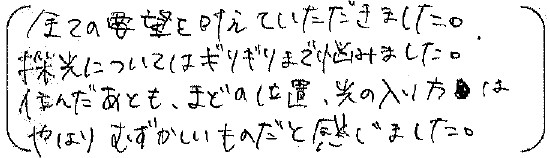 全ての要望を叶えていただきました。
採光についてはぎりぎりまで悩みました。
住んだあとも、まどの位置、光の入り方は
やはりむずかしいものだと感じました。